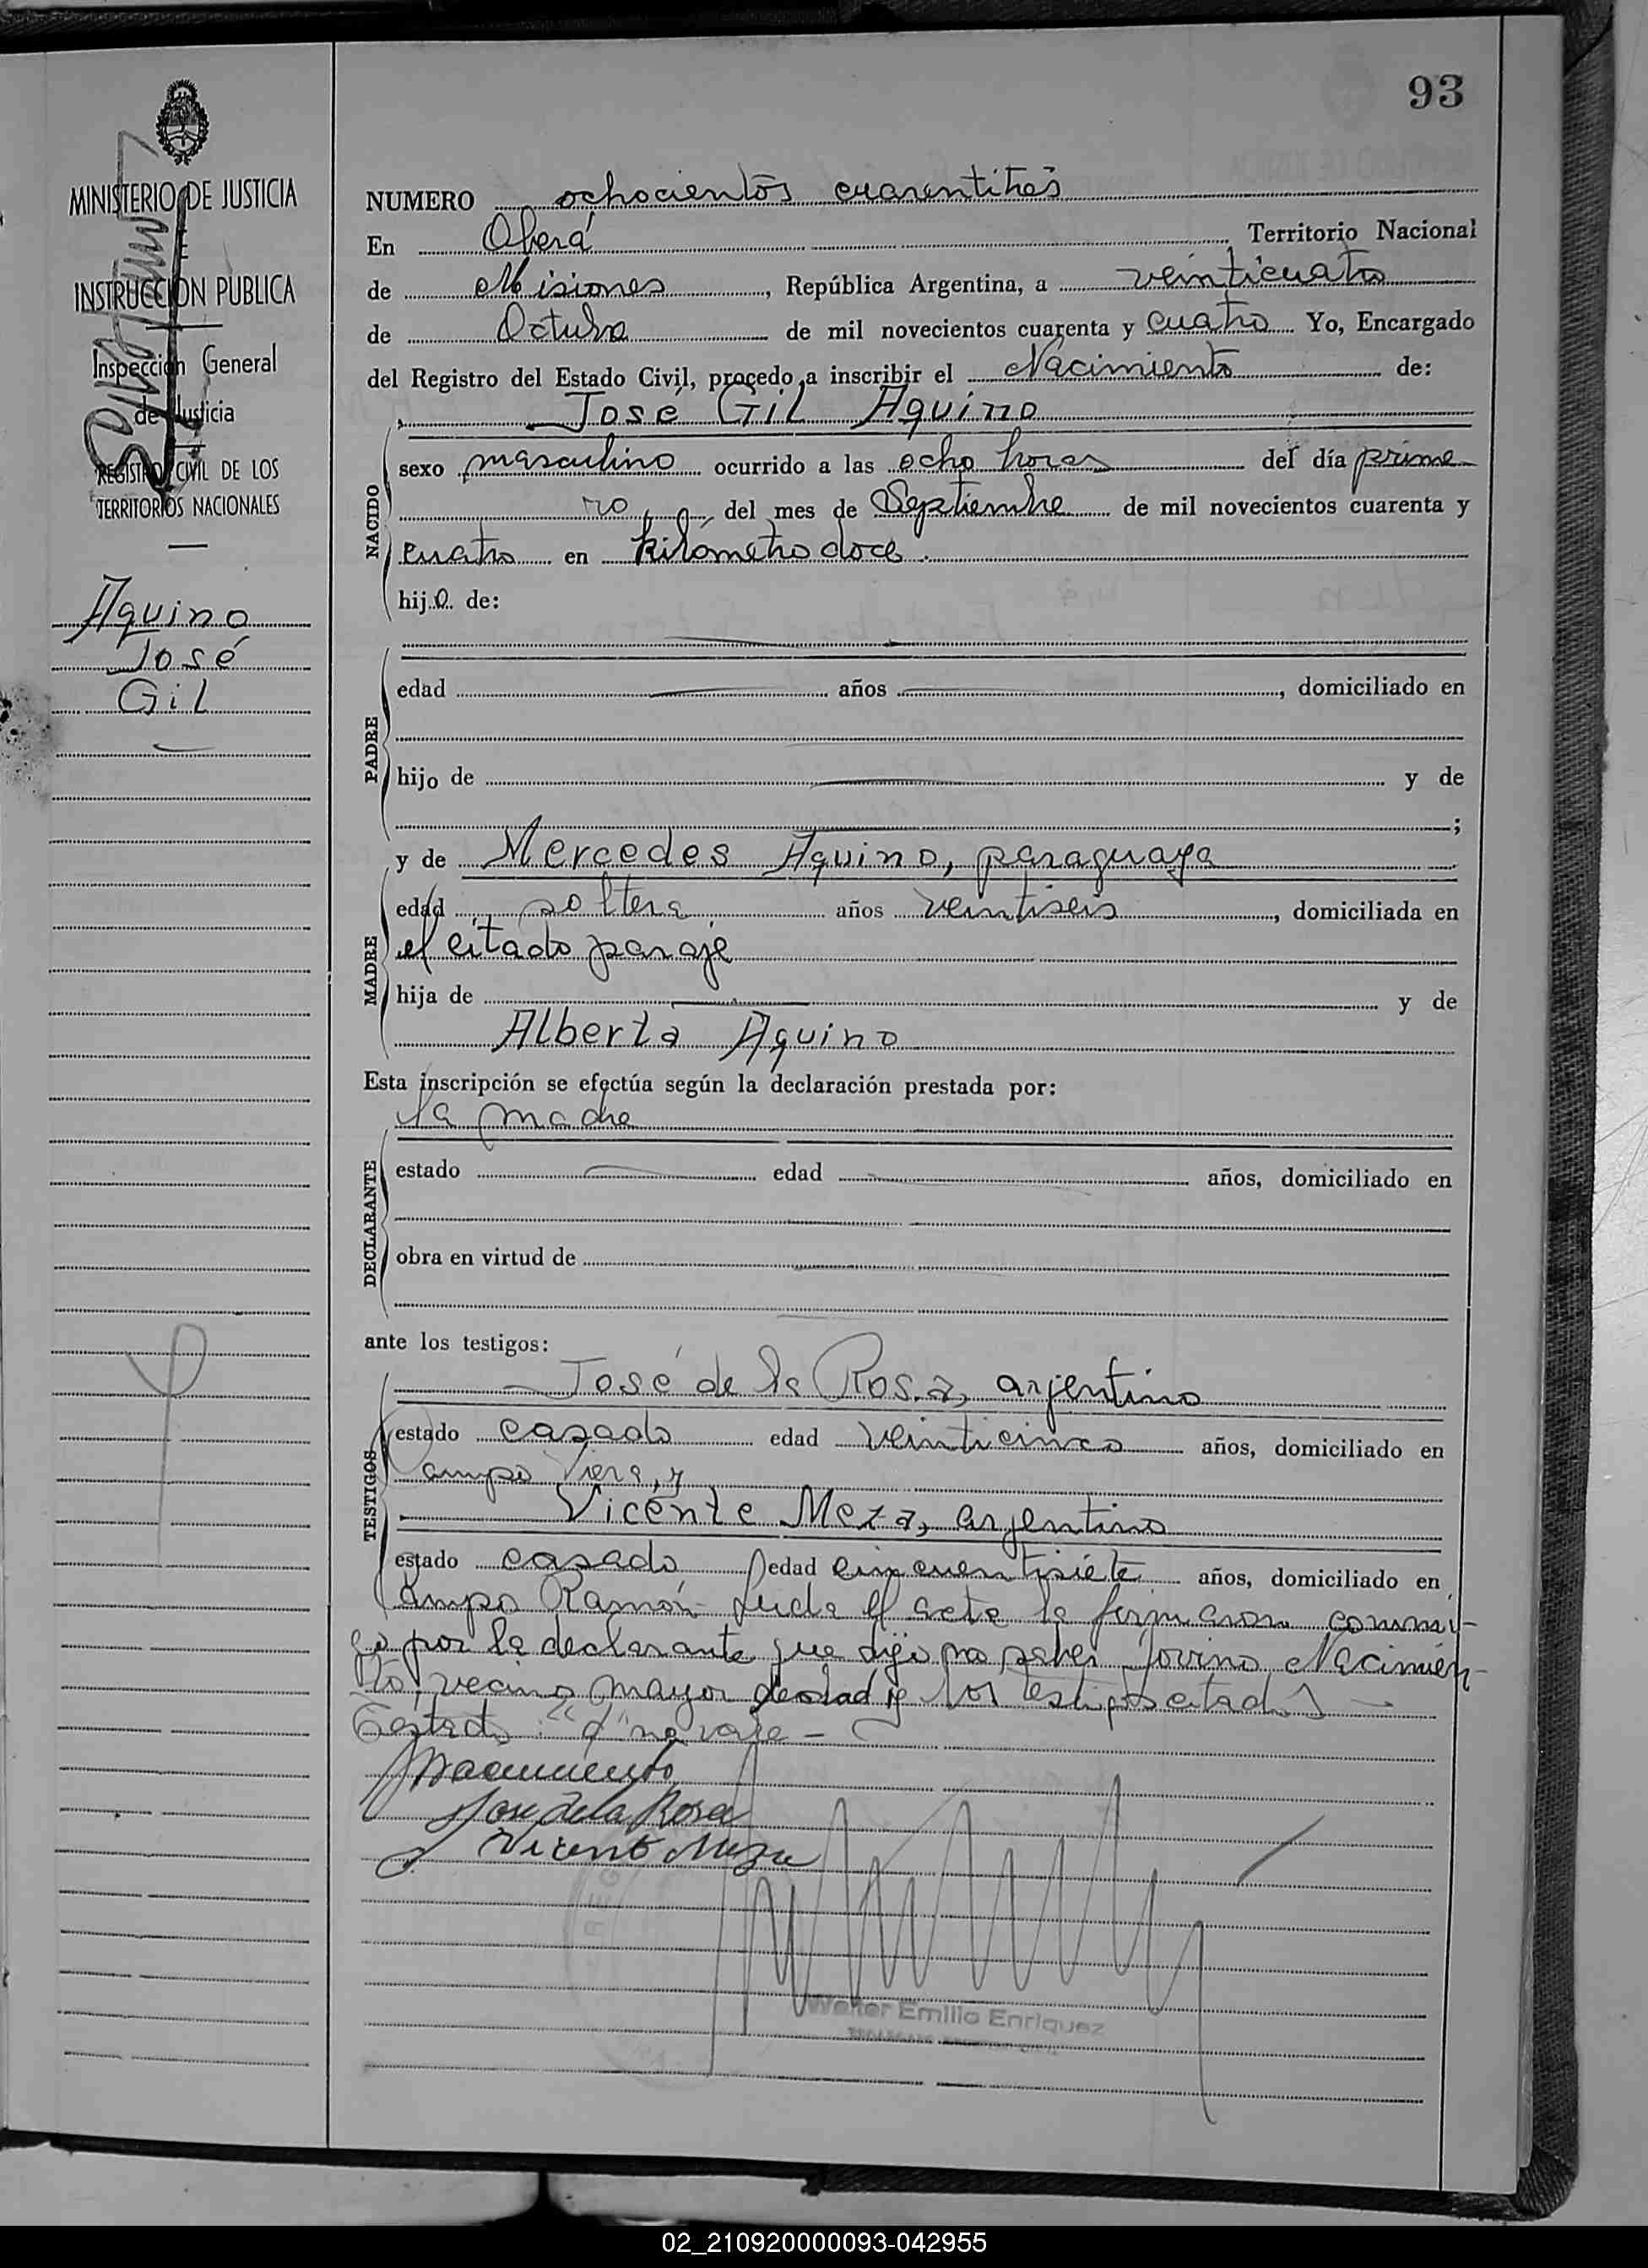 93
MINISTERIO DE JUSTICIA
E
INSTRUCCION PUBLICA
Inspección General
de Justicia
REGISTRO CIVIL DE LOS
TERRITORIOS NACIONALES
Aquino
José
Gil
NUMERO ochocientos cuarentitrés
En Oberá Territorio Nacional
de Misiones, República Argentina, a veinticuatro
de Octubre de mil novecientos cuarenta y cuatro Yo, Encargado
del Registro del Estado Civil, procedo a inscribir el Nacimiento de:
José Gil Aquino
NACIDO
sexo masculino ocurrido a las ocho horas del día prime
ro del mes de Septiembre de mil novecientos cuarenta y
cuatro en kilómetro doce.
hijo de:
PADRE
edad años, domiciliado en
hijo de y de
;
y de Mercedes Aquino, paraguaya
MADRE
edad soltera años veintiseis, domiciliada en
el citado paraje
hija de y de
Alberta Aquino
Esta inscripción se efectúa según la declaración prestada por:
la madre
DECLARANTE
estado edad años, domiciliado en
obra en virtud de
ante los testigos:
José de la Rosa, argentino
TESTIGOS
estado casado edad veinticinco años, domiciliado en
Campo Viera, y
Vicente Meza, argentino
estado casado edad cincuentisiete años, domiciliado en
Campo Ramón. Leída el acta la firmaron conmi-
go por la declarante que dijo no saber Jovino Nacimien-
to, vecino mayor de edad y los testigos citados
Testado: "d" no vale -
Nacimiento
Jose de la Rosa
Vicente Meza
Walter Emilio Enriquez
02_210920000093-042955